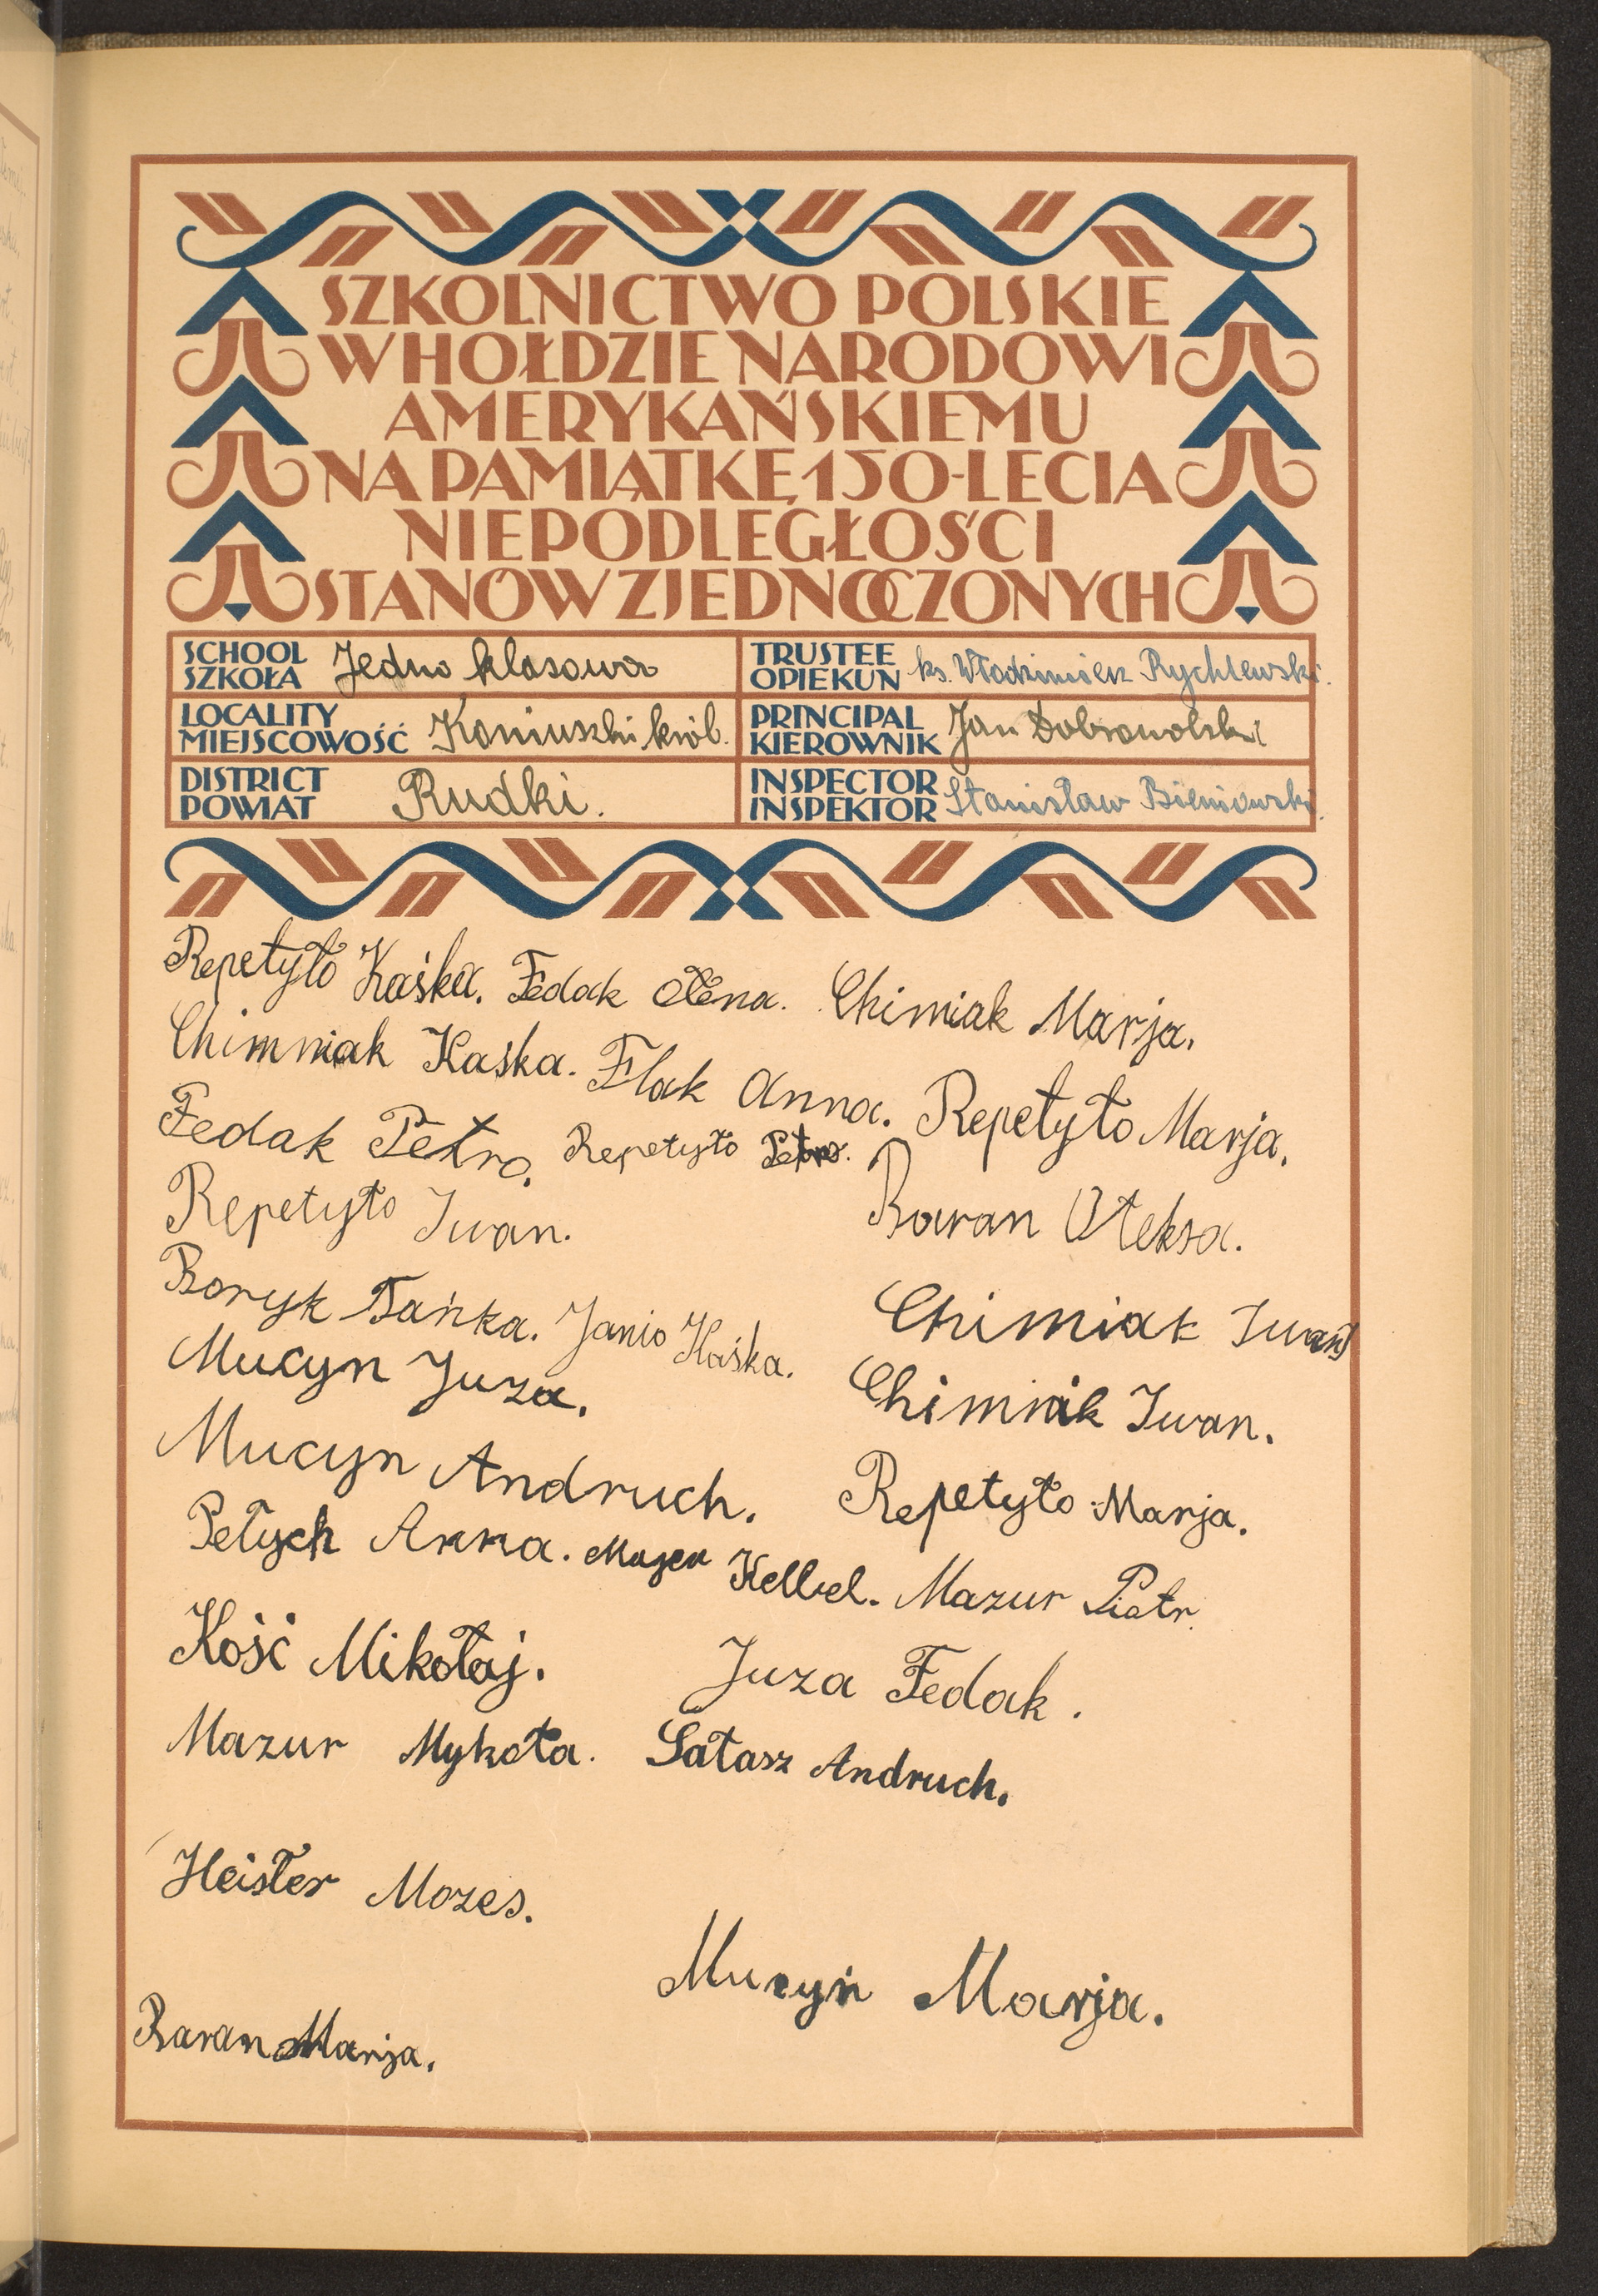 SZKOLNICTWO POLSKIE
W HOŁDZIE NARODOWI
AMERYKAŃSKIEMU
NA PAMIĄTKĘ 150-LECIA
NIEPODLEGŁOŚCI
STANÓW ZJEDNOCZONYCH
SCHOOL SZKOŁA Jedno klasowa
TRUSTEE OPIEKUN ks. Włodzimierz Rychlewski.
LOCALITY MIEJSCOWOŚĆ Koniuszki król.
PRINCIPAL KIEROWNIK Jan Dobrowolski
DISTRICT POWIAT Rudki.
INSPECTOR INSPEKTOR Stanisław Bieniowski.
Repetyło Kaśka. Fedak Ołena. Chimiak Marja.
Chimniak Kaska. Flak Anna. Repetyło Marja.
Fedak Petro. Repetyło Petro.
Repetyło Iwan. Baran Ołeksa.
Boryk Tańka. Janio Kaśka. Chimiak Iwan
Mucyn Juza. Chimiak Iwan.
Mucyn Andruch. Repetyło Marja.
Pełych Anna. Kelbel. Mazur Piotr.
Kość Mikołaj. Juza Fedak.
Mazur Mykoła. Sałasz Andruch.
Heisler Mozes.
Mucyn Marja.
Baran Marja.